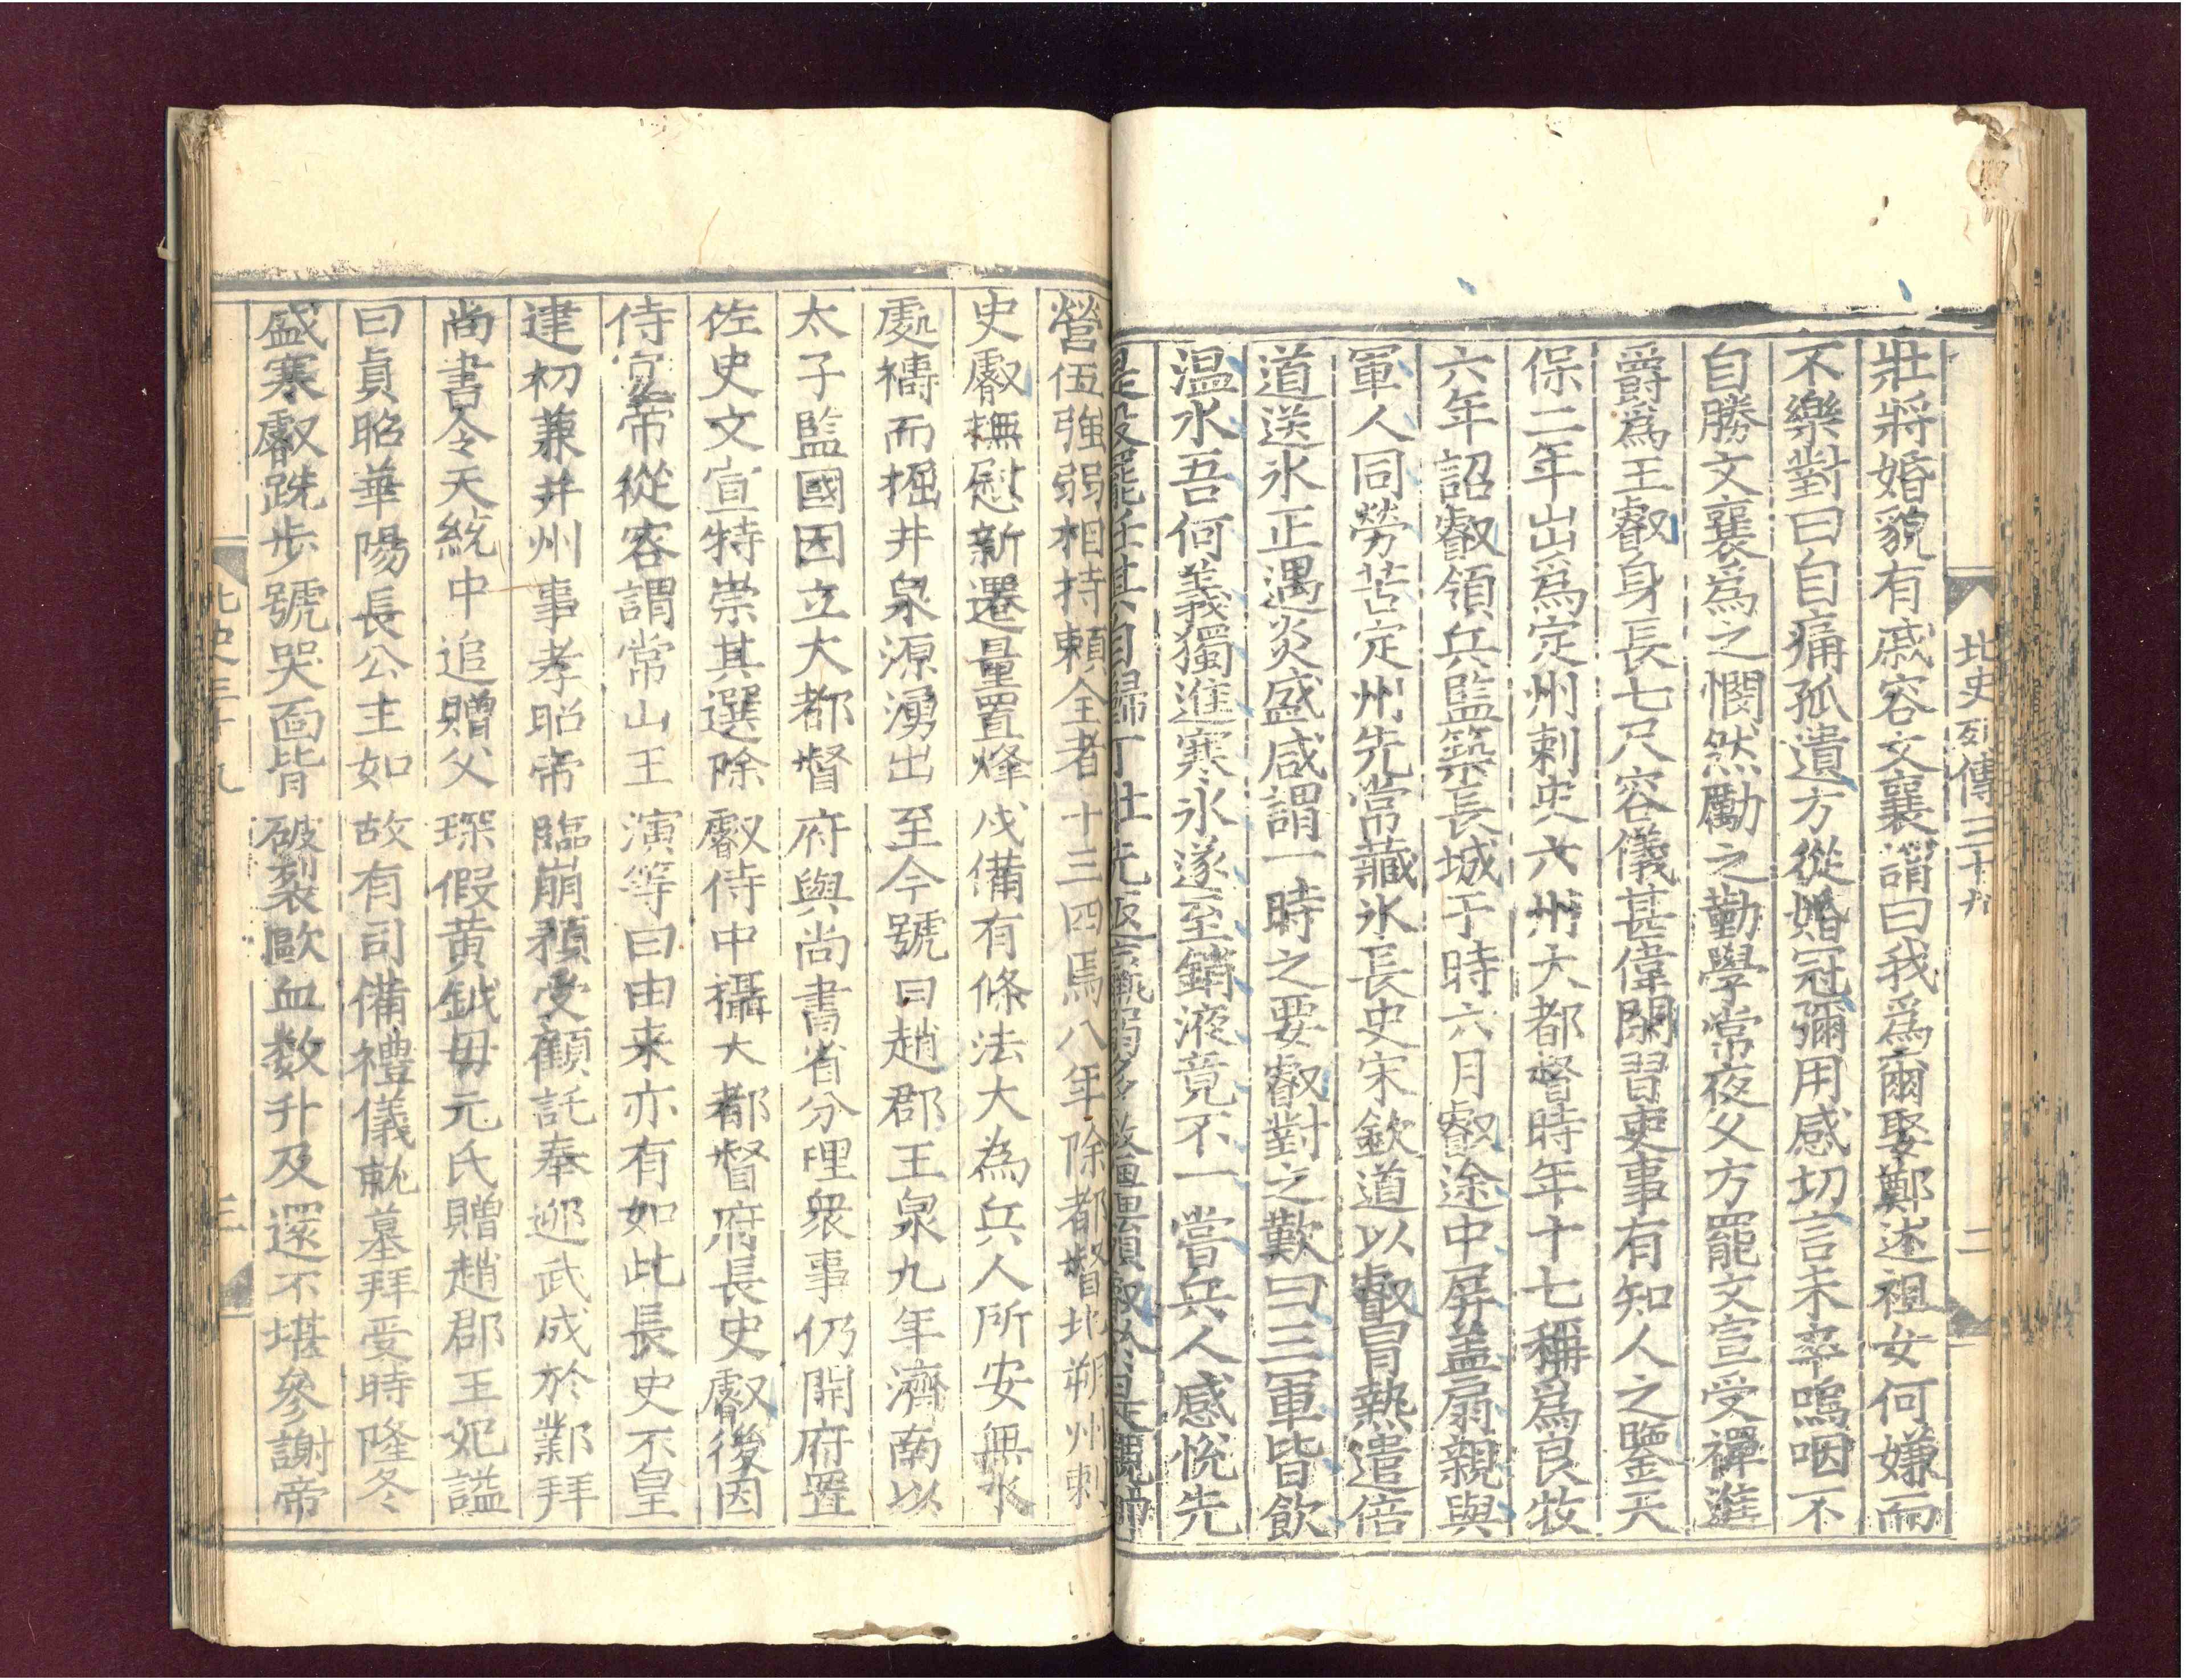 北史列傳三十九 二
壯將婚貌有戚容文襄謂曰我爲爾娶鄭述祖女何嫌而
不樂對曰自痛孤遺方從婚冠彌用感切言未卒嗚咽不
自勝文襄爲之憫然勵之勤學常夜久方罷文宣受禪進
爵爲王叡身長七尺容儀甚偉閑習吏事有知人之鑒天
保二年出爲定州刺史六州大都督時年十七稱爲良牧
六年詔叡領兵監築長城于時六月叡途中屏蓋扇親與
軍人同勞苦定州先常藏氷長史宋欽道以叡冒熱遣倍
道送氷正遇炎盛咸謂一時之要叡對之歎曰三軍皆飲
温水吾何義獨進寒氷遂至銷液竟不一嘗兵人感悅先
是役罷任其自歸丁壯先返羸弱多致僵殞叡於是親帥
營伍強弱相持賴全者十三四焉八年除都督北朔州刺
史叡撫慰新遷量置烽戍備有條法大為兵人所安無水
處禱而掘井泉源湧出至今號曰趙郡王泉九年濟南以
太子監國因立大都督府與尚書省分理衆事仍開府置
佐史文宣特崇其選除叡侍中攝大都督府長史叡後因
侍宴帝從容謂常山王演等曰由来亦有如此長史不皇
建初兼并州事孝昭帝臨崩預受顧託奉迎武成於鄴拜
尚書令天統中追贈父琛假黄鉞母元氏贈趙郡王妃謚
曰貞昭華陽長公主如故有司備禮儀就墓拜受時隆冬
盛寒叡跣步號哭面皆破裂歐血数升及還不堪參謝帝
北史三十九 三